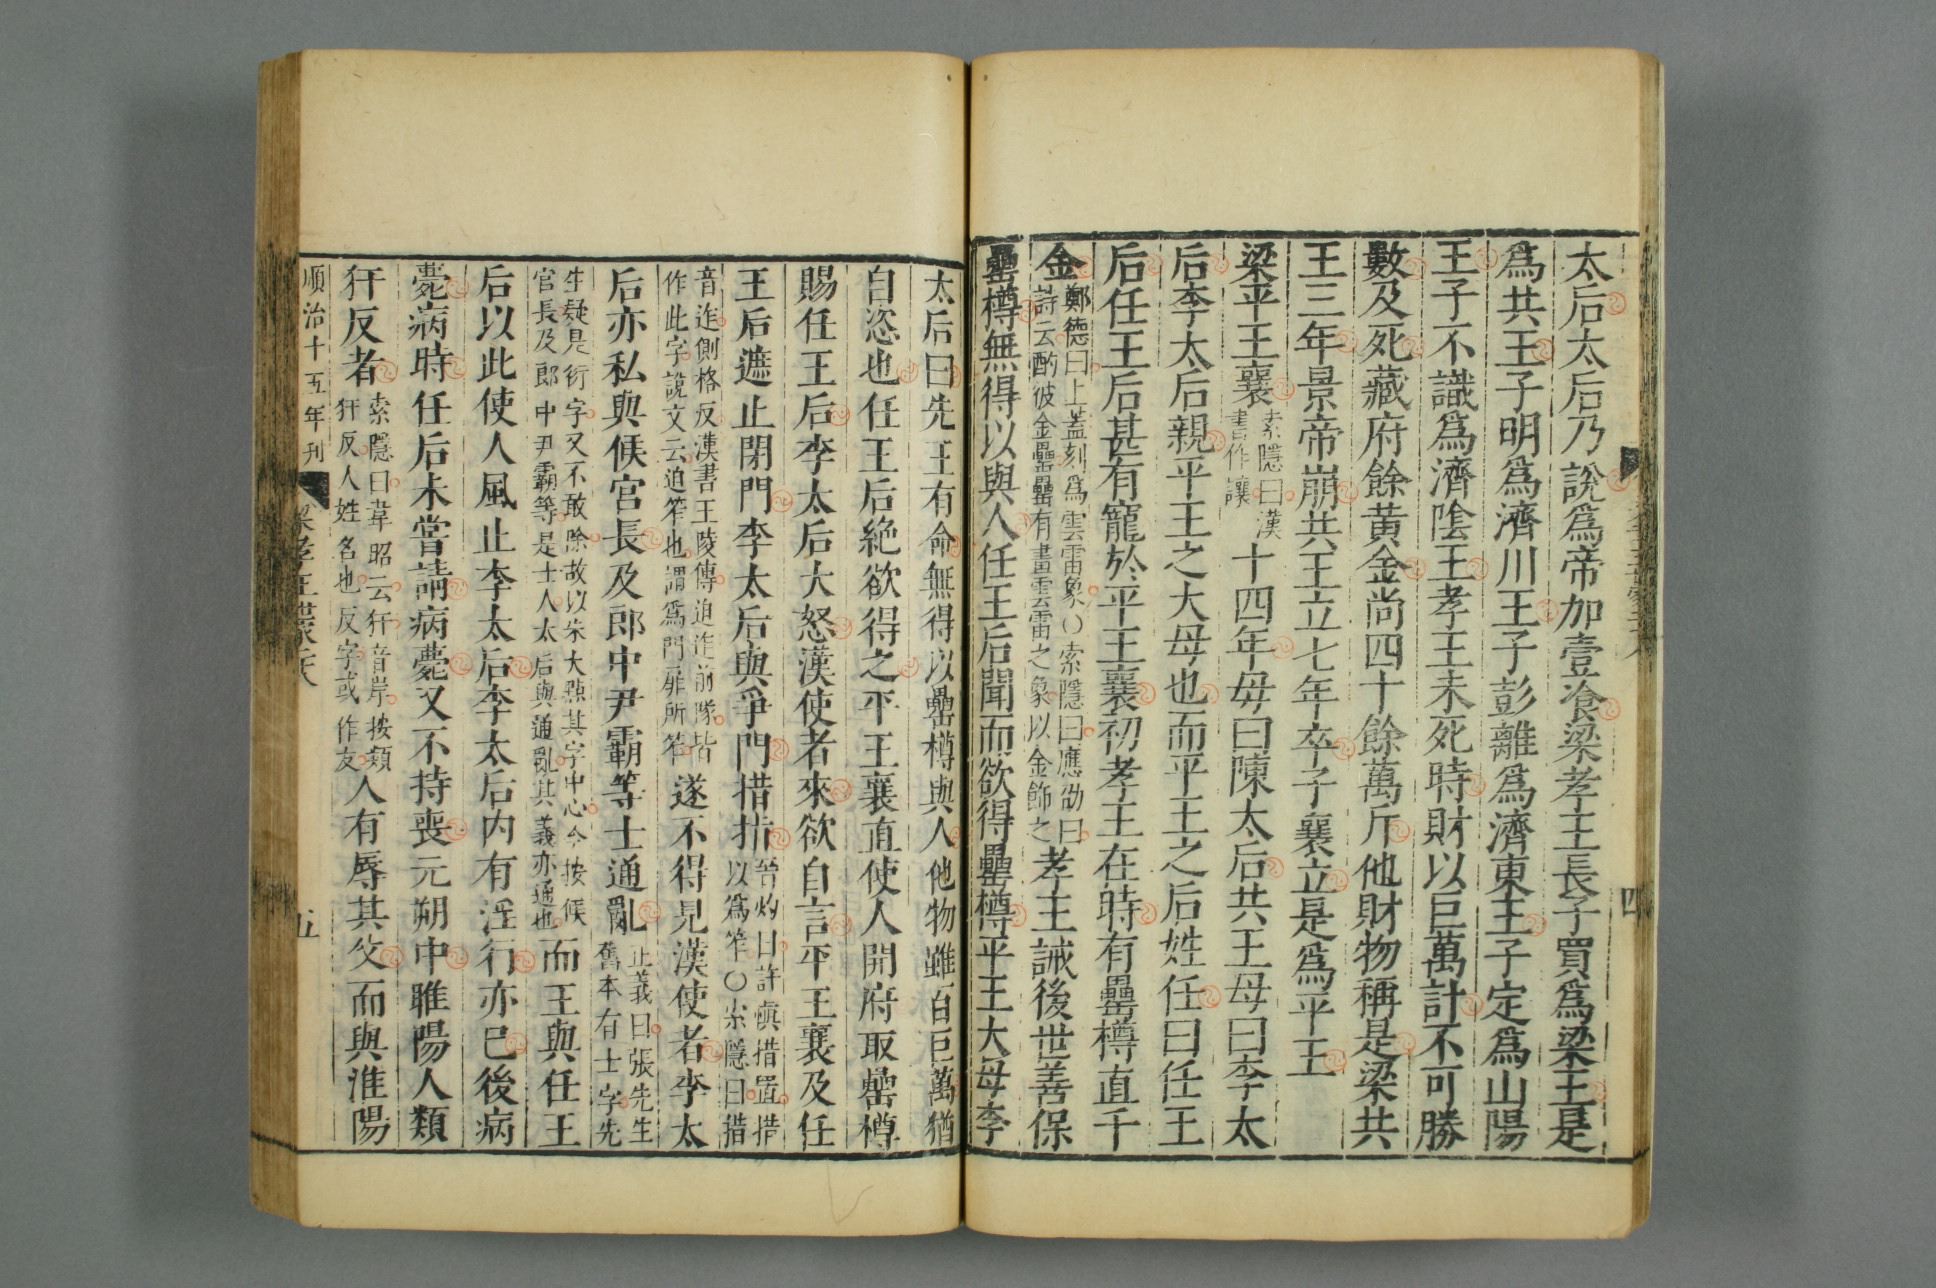 太后太后乃說爲帝加壹飡梁孝王長子買爲梁王是
爲共王子明爲濟川王子彭離爲濟東王子定爲山陽
王子不識爲濟陰王孝王未死時財以巨萬計不可勝
數及死藏府餘黃金尚四十餘萬斤他財物稱是梁共
王三年景帝崩共王立七年卒子襄立是爲平王
梁平王襄
索隱曰漢
書作讓
十四年母曰陳太后共王母曰李太
后李太后親平王之大母也而平王之后姓任曰任王
后任王后甚有寵於平王襄初孝王在時有罍樽直千
金
鄭德曰上蓋刻爲雲雷象○索隱曰應劭曰
詩云酌彼金罍罍有畫雲雷之象以金飾之
孝王誡後世善保
罍樽無得以與人任王后聞而欲得罍樽平王大母李
四
太后曰先王有命無得以罍樽與人他物雖百巨萬猶
自恣也任王后絶欲得之平王襄直使人開府取罍樽
賜任王后李太后大怒漢使者來欲自言平王襄及任
王后遮止閉門李太后與爭門措指
晉灼曰許愼措置措
以爲笮○索隱曰措
音迮側格反漢書王陵傳迫迮前隊皆
作此字說文云迫笮也謂爲門扉所笮
遂不得見漢使者李太
后亦私與候宮長及郎中尹霸等士通亂
正義曰張先生
舊本有士字先
生疑是衍字又不敢除故以朱大點其字中心今按候
官長及郎中尹霸等是士人太后與通亂其義亦通也
而王與任王
后以此使人風止李太后李太后内有淫行亦已後病
薨病時任后未嘗請病薨又不持喪元朔中睢陽人類
犴反者
索隱曰韋昭云犴音岸按類
犴反人姓名也反字或作友
人有辱其父而與淮陽
順治十五年刊
梁孝王世家
五